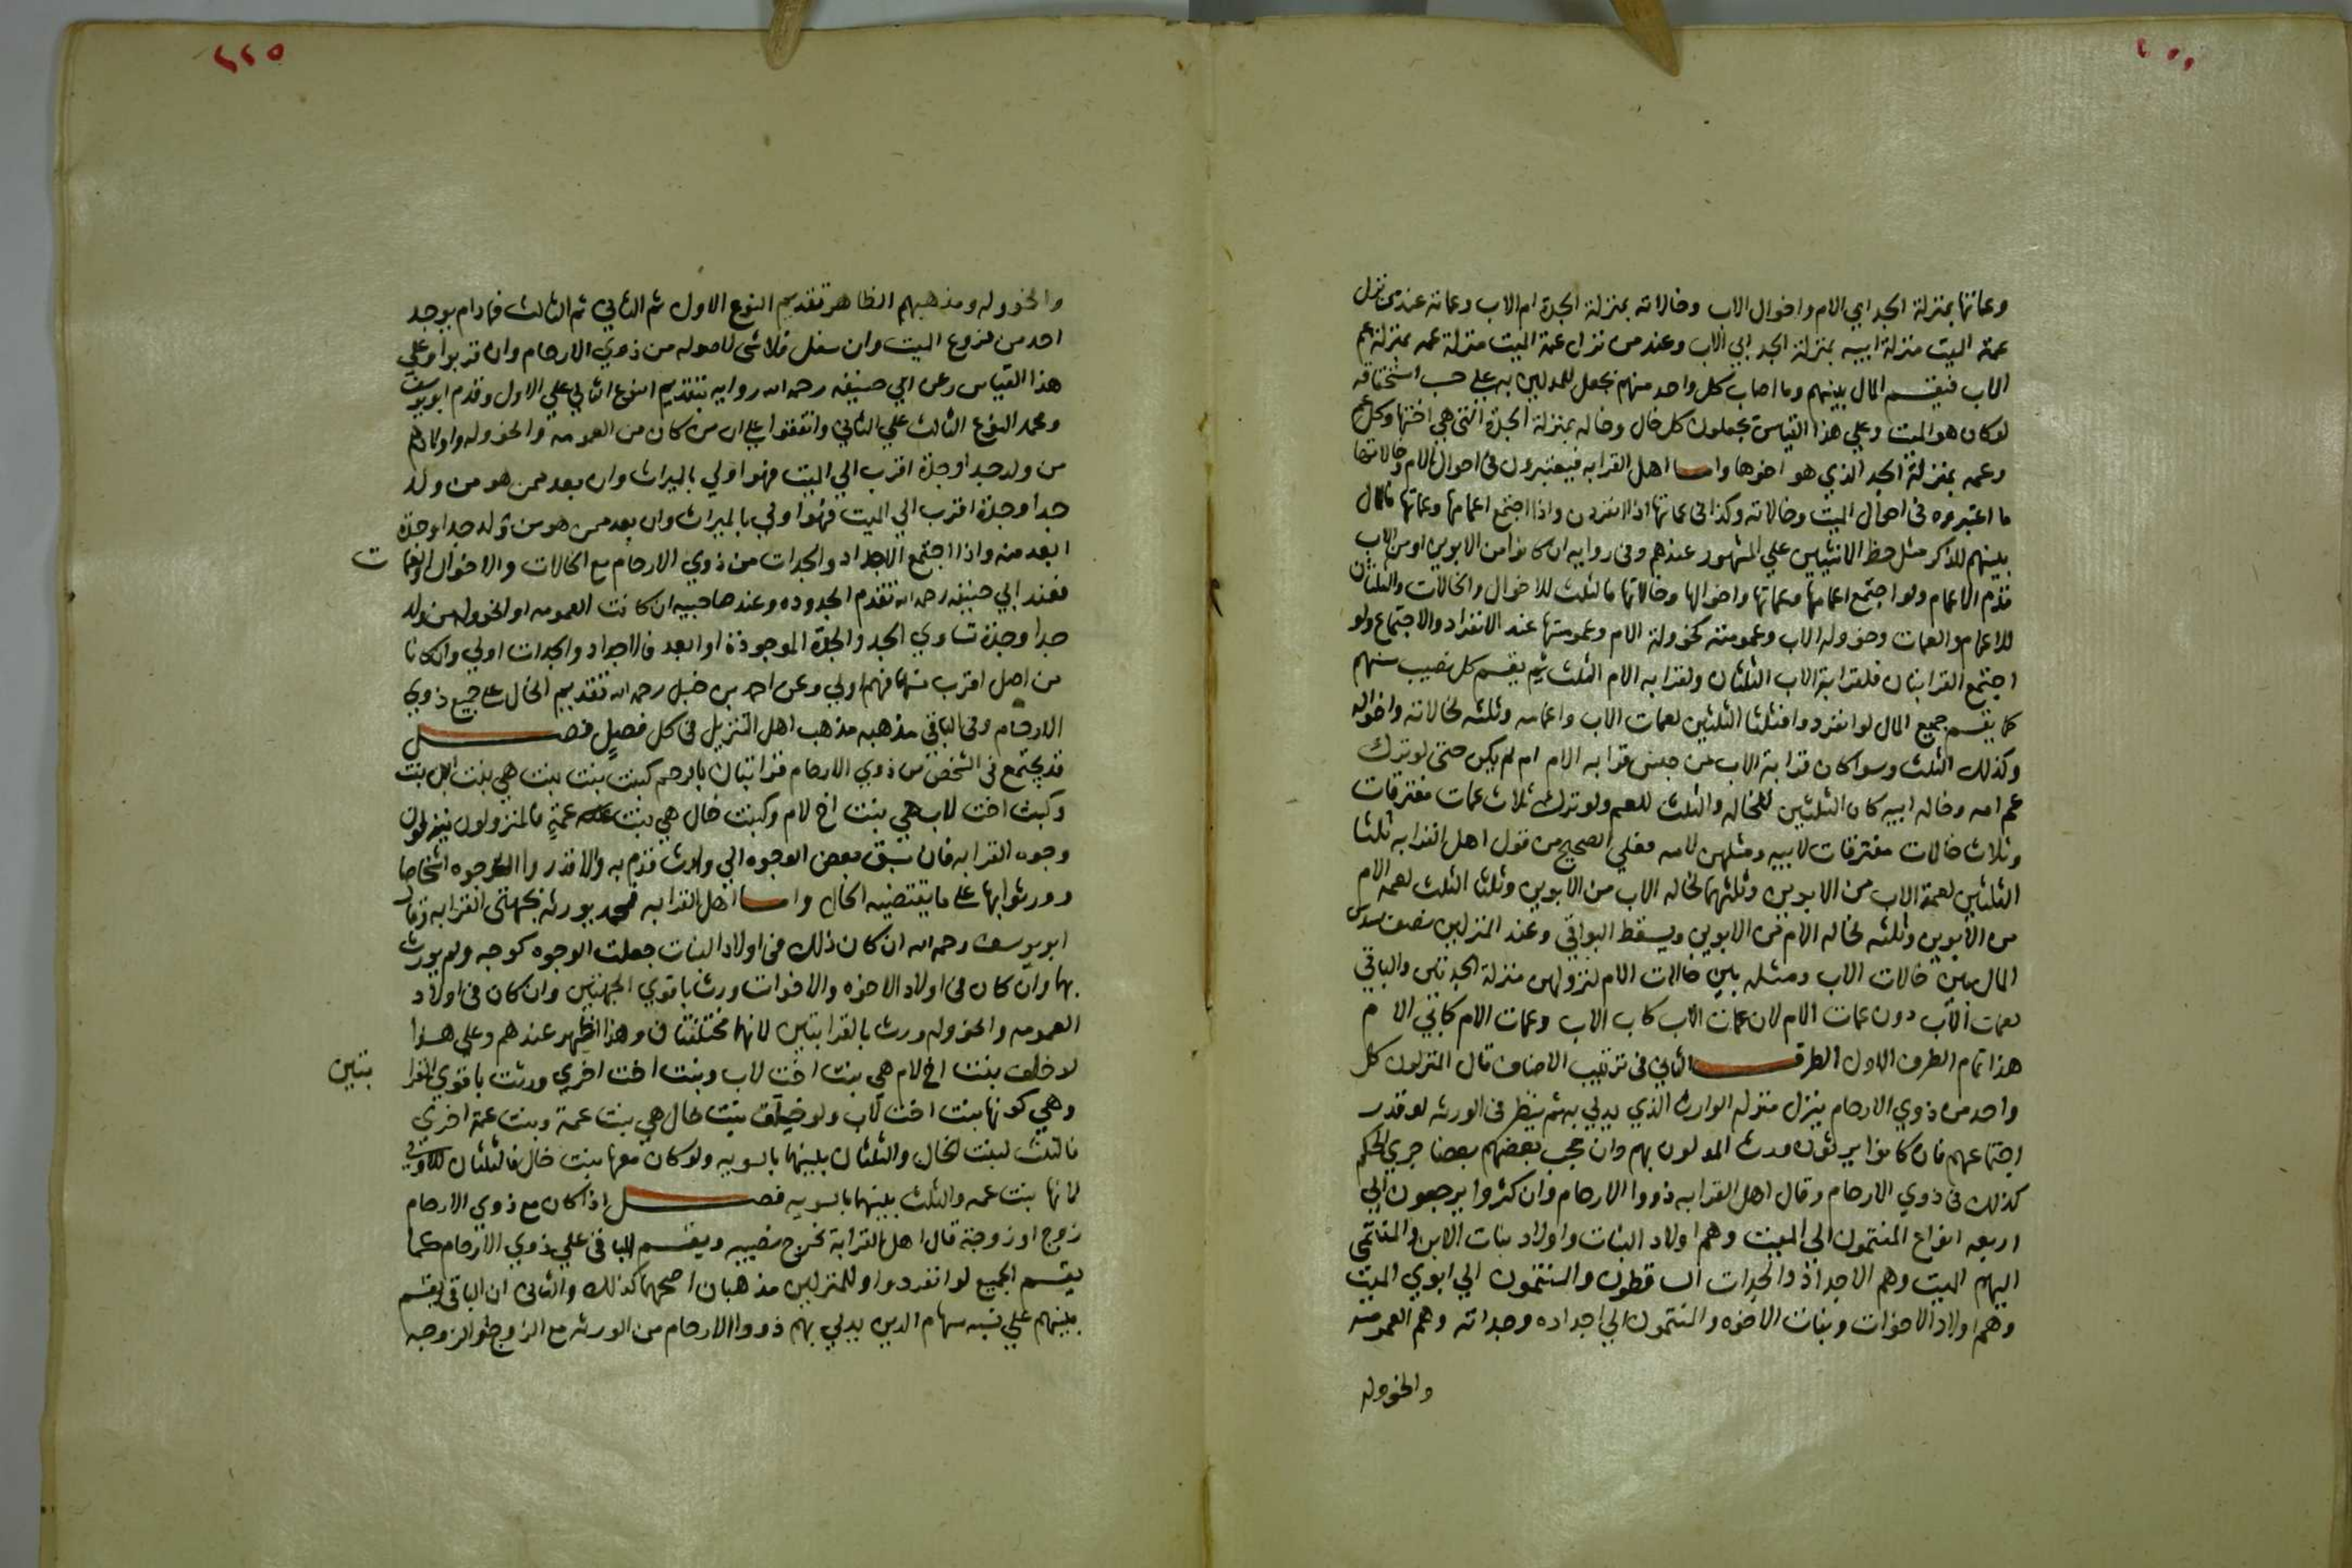 وعماتها بمنزلة الجد ابي الام واخوال الاب وخالاته بمنزلة الجدة ام الاب وعماته عند من نزل
عمة الميت منزلة ابيه بمنزلة الجد ابي الاب وعند من نزل عمة الميت منزلة عمه بمنزلة عم
الاب فيقسم المال بينهم وما اصاب كل واحد منهم يجعل للمدلين به علي حسب استحقاقه
لو كان هو الميت وعلي هذا القياس يجعلون كل خال وخاله بمنزلة الجدة التي هي اختها وكل عم
وعمه بمنزلة الجد الذي هو اخوها واما اهل القرابه فيعتبرون في اخوال الام وخالاتها
ما اعتبروه في اخوال الميت وخالاته وكذا في عماتها اذا انفردن واذا اجتمع اعمامها وعماتها فالمال
بينهم للذكر مثل حظ الانثيين علي المشهور عندهم وفي روايه ان كانوا من الابوين او من الاب
قدم الاعمام ولو اجتمع اعمامها وعماتها واخوالها وخالاتها فالثلث للاخوال والخالات والثلثان
للاعمام والعمات وخوولة الاب وعمومته كخوولة الام وعمومتها عند الانفراد والاجتماع ولو
اجتمع القرابتان فلقرابة الاب الثلثان ولقرابه الام الثلث ثم يقسم كل نصيب منهم
كما يقسم جميع المال لو انفردوا فثلثا الثلثين لعمات الاب واعمامه وثلثه لخالاته واخواله
وكذلك الثلث وسوا كان قرابة الاب من جنس قرابه الام ام لم يكن حتى لو ترك
عم امه وخاله ابيه كان الثلثين للخاله والثلث للعم ولو ترك ثلاث عمات مفترقات
وثلاث خالات مفترقات لابيه ومثلهن لامه فعلي الصحيح من قول اهل القرابه ثلثا
الثلثين لعمة الاب من الابوين وثلثهما لخاله الاب من الابوين وثلثا الثلث لعمه الام
من الابوين وثلثه لخاله الام من الابوين ويسقط البواقي وعند المنزلين نصف سدس
المال بين خالات الاب ومثله بين خالات الام لنزولهن منزلة الجدتين والباقي
لعمات الاب دون عمات الام لان عمات الاب كاب الاب وعمات الام كابي الام
هذا تمام الطرف الاول الطرف الثاني في ترتيب الاصناف قال المنزلون كل
واحد من ذوي الارحام ينزل منزله الوارث الذي يدلي به ثم ينظر في الورثه لو قدر
اجتماعهم فان كانوا يرثون ورث المدلون بهم وان حجب بعضهم بعضا جري الحكم
كذلك في ذوي الارحام وقال اهل القرابه ذووا الارحام وان كثروا يرجعون الي
اربعه انواع المنتمون الي الميت وهم اولاد البنات واولاد بنات الابن والمنتمي
اليهم الميت وهم الاجداد والجدات الساقطون والمنتمون الي ابوي الميت
وهم اولاد الاخوات وبنات الاخوه والمنتمون الي اجداده وجداته وهم العمومه
والخووله
٢٢٥
والخووله ومذهبهم الظاهر تقديم النوع الاول ثم الثاني ثم الثالث فما دام يوجد
احد من فروع الميت وان سفل فلا شي لاصوله من ذوي الارحام وان قربوا وعلي
هذا القياس وعن ابي حنيفه رحمه الله روايه بتقديم النوع الثاني علي الاول وقدم ابو يوسف
ومحمد النوع الثالث علي الثاني واتفقوا علي ان من كان من العمومه والخووله واولادهم
من ولد جد او جدة اقرب الي الميت فهو اولي بالميراث وان بعد ممن هو من ولد
جد او جدة اقرب الي الميت فهو اولي بالميراث وان بعد ممن هو من ولد جد او جدة
ابعد منه واذا اجتمع الاجداد والجدات من ذوي الارحام مع الخالات والاخوال والعمات
فعند ابي حنيفه رحمه الله تقدم الجدوده وعند صاحبيه ان كانت العمومه او الخووله من ولد
جد او جدة تساوي الجد والجدة الموجودة او ابعد فالاجداد والجدات اولي وان كانا
من اصل اقرب منهما فهم اولي وعن احمد بن حنبل رحمه الله تقديم الخال علي جميع ذوي
الارحام وفي الباقي مذهبه مذهب اهل التنزيل في كل فصل فصل
قد يجتمع في الشخص من ذوي الارحام قرابتان بالرحم كبنت بنت بنت هي بنت ابن بنت
وكبنت اخت لاب هي بنت اخ لام وكبنت خال هي بنت عمة فالمنزلون ينزلون
وجوه القرابه فان سبق بعض الوجوه الي وارث قدم به والا قدروا الوجوه اشخاصا
وورثوا بها علي ما يقتضيه الحال واما اهل القرابه فمحمد يورثه بجهتي القرابه وقال
ابو يوسف رحمه الله ان كان ذلك في اولاد البنات جعلت الوجوه كوجه ولم يورث
بها وان كان في اولاد الاخوه والاخوات ورث باقوي الجهتين وان كان في اولاد
العمومه والخووله ورث بالقرابتين لانهما مختلفتان وهذا اظهر عندهم وعلي هذا
لو خلف بنت اخ لام هي بنت اخت لاب وبنت اخت اخري ورثت باقوي القرابتين
وهي كونها بنت اخت لاب ولو خلف بنت خال هي بنت عمة وبنت عمة اخري
فالثلث لبنت الخال والثلثان بينهما بالسويه ولو كان معها بنت خال فالثلثان للاولي
لانها بنت عمه والثلث بينهما بالسويه فصل اذا كان مع ذوي الارحام
زوج او زوجة قال اهل القرابة نخرج نصيبه ويقسم الباقي علي ذوي الارحام كما
يقسم الجميع لو انفردوا وللمنزلين مذهبان اصحهما كذلك والثاني ان الباقي يقسم
بينهم علي نسبه سهام الذين يدلي بهم ذووا الارحام من الورثه مع الزوج او الزوجه